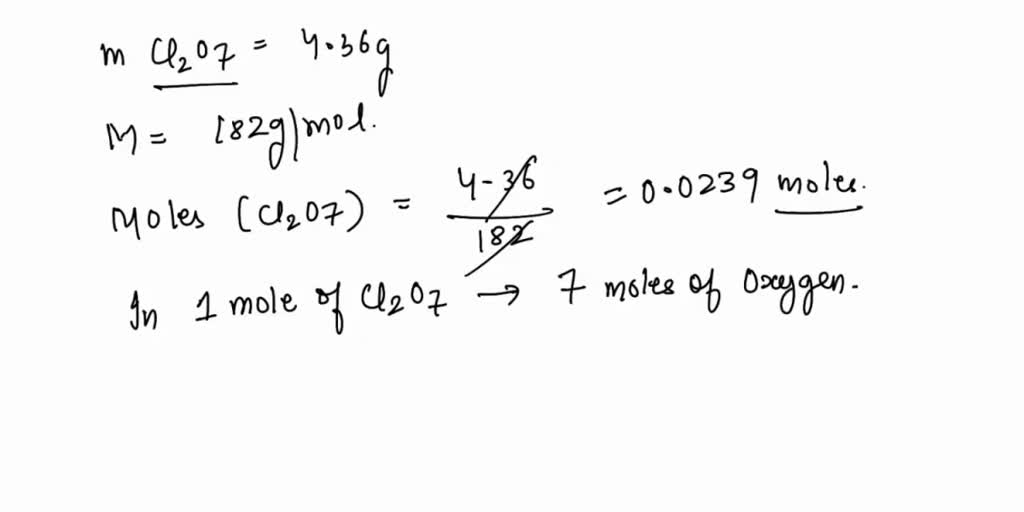 m Cl₂O7 = 4.36g
M = 182g/mol.
Moles (Cl₂O7) = 4-36/182 = 0.0239 moles.
In 1 mole of Cl₂O7 → 7 moles of Oxygen.